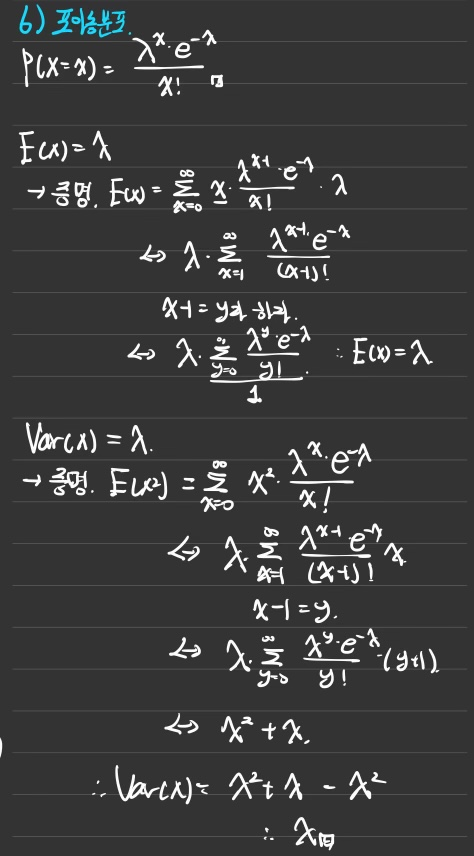 6) 포아송분포.
P(X=x) = λ^x · e^-λ / x!
E(x) = λ
→ 증명. E(x) = ∑_{x=0}^{∞} x · λ^{x-1} · e^-λ / x! · λ
⇔ λ · ∑_{x=1}^{∞} λ^{x-1} e^-λ / (x-1)!
x-1 = y라 하자.
⇔ λ · ∑_{y=0}^{∞} λ^y · e^-λ / y! ∴ E(x) = λ
1
Var(x) = λ.
→ 증명. E(x²) = ∑_{x=0}^{∞} x² · λ^x · e^-λ / x!
⇔ λ · ∑_{x=1}^{∞} λ^{x-1} e^-λ / (x-1)! x
x-1 = y.
⇔ λ · ∑_{y=0}^{∞} λ^y · e^-λ / y! · (y+1)
⇔ λ² + λ.
∴ Var(x) = λ² + λ - λ²
∴ λ